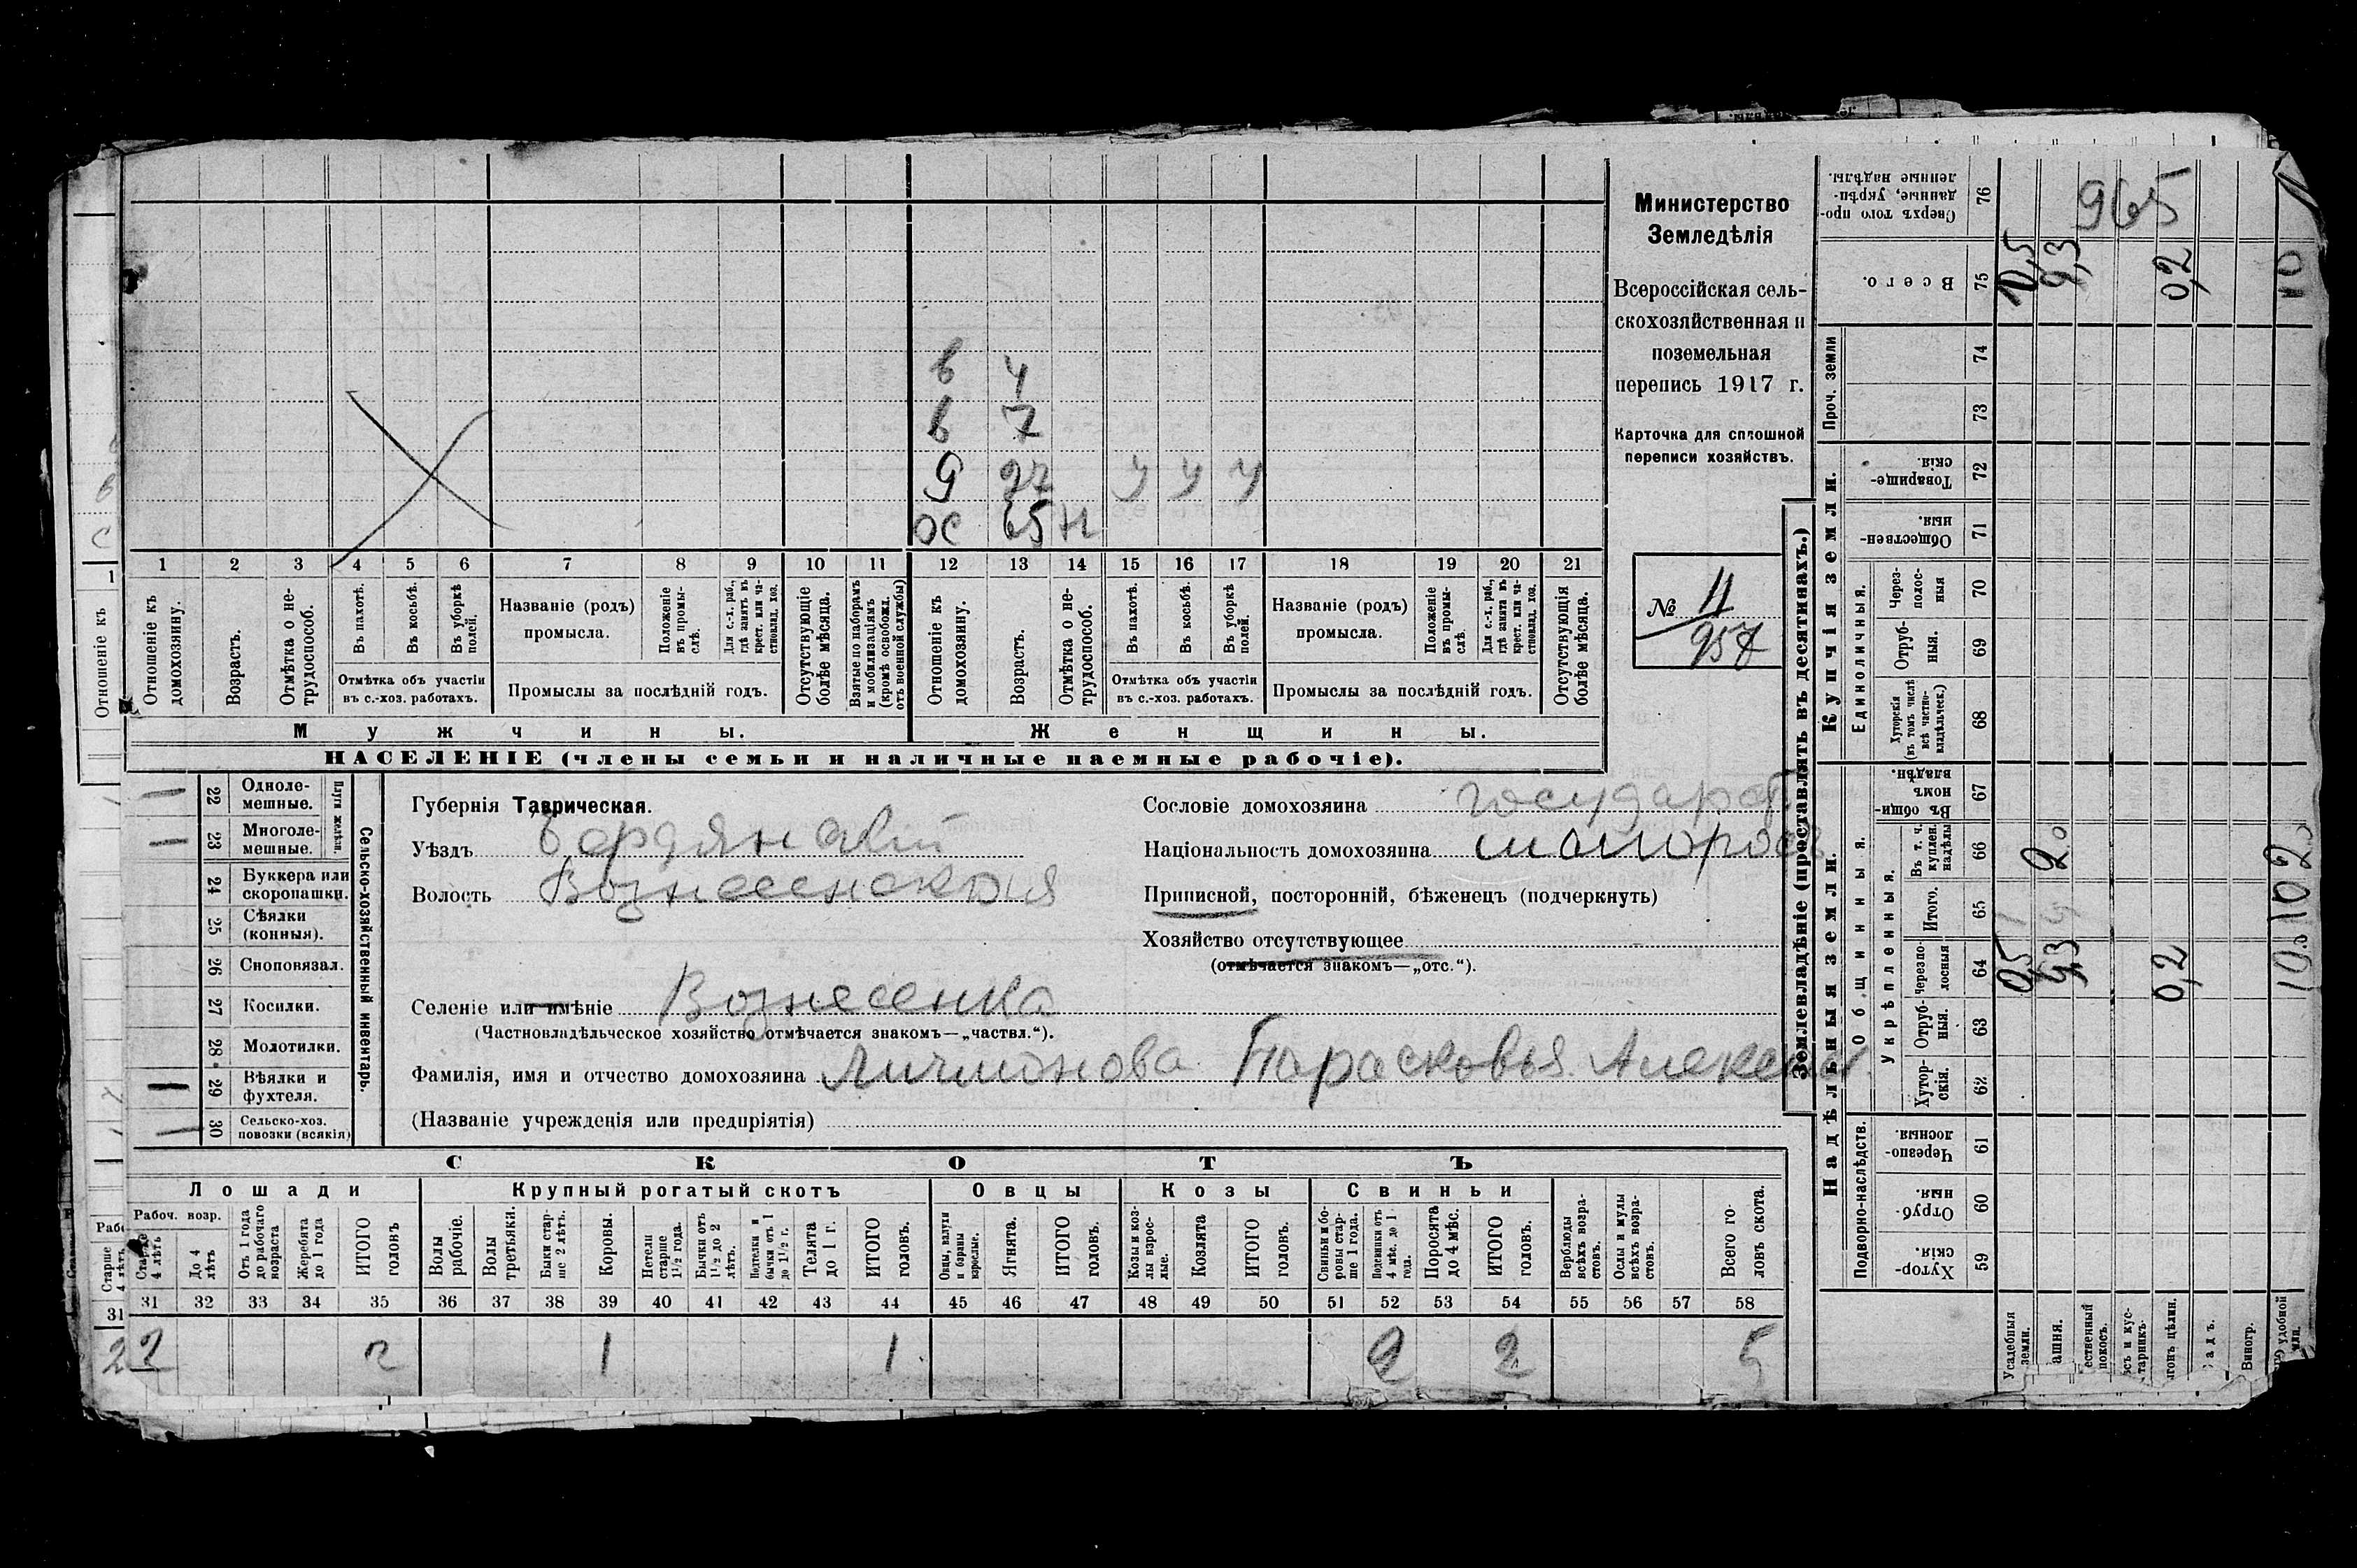 Министерство
Земледѣлія
Всероссійская сель-
скохозяйственная и
поземельная
перепись 1917 г.
Карточка для сплошной
переписи хозяйствъ.
№ 11
957
в 4
в 7
9 27 у у у
ОС 65 Н
1 2 3 4 5 6 7 8 9 10 11 12 13 14 15 16 17 18 19 20 21
Отношеніе къ домохозяину.
Возрастъ.
Отмѣтка о не-трудоспособ.
Въ пахотѣ.
Въ косьбѣ.
Въ уборкѣ полей.
Отмѣтка объ участіи
въ с.-хоз. работахъ.
Названіе (родъ)
промысла.
Положеніе въ промы-слѣ.
Для с.-х. раб., гдѣ занятъ въ крест. или ча-стновлад. хоз.
Промыслы за послѣдній годъ.
Отсутствующіе болѣе мѣсяца.
Взятые по наборамъ и мобилизаціямъ (кромѣ освобожд. отъ военной службы)
Отношеніе къ домохозяину.
Возрастъ.
Отмѣтка о не-трудоспособ.
Въ пахотѣ.
Въ косьбѣ.
Въ уборкѣ полей.
Отмѣтка объ участіи
въ с.-хоз. работахъ.
Названіе (родъ)
промысла.
Положеніе въ промы-слѣ.
Для с.-х. раб., гдѣ занята въ крест. или ча-стновлад. хоз.
Промыслы за послѣдній годъ.
Отсутствующія болѣе мѣсяца.
Мужчины.
Женщины.
НАСЕЛЕНІЕ (члены семьи и наличные наемные рабочіе).
Сельско-хозяйственный инвентарь.
Плуги желѣзн.
22 Одноле-мешные.
23 Многоле-мешные.
24 Буккера или скоропашки.
25 Сѣялки (конныя).
26 Сноповязал.
27 Косилки.
28 Молотилки.
29 Вѣялки и фухтеля.
30 Сельско-хоз. повозки (всякія)
Губернія Таврическая.
Уѣздъ Бердянскій
Волость Вознесенская
Селеніе или имѣніе Вознесенка
(Частновладѣльческое хозяйство отмѣчается знакомъ—„частвл.“).
Фамилія, имя и отчество домохозяина Личманова Парасковья Алексѣ
(Названіе учрежденія или предпріятія)
Сословіе домохозяина государст
Національность домохозяина малоросъ
Приписной, посторонній, бѣженецъ (подчеркнуть)
Хозяйство отсутствующее
(отмѣчается знакомъ—„отс.“).
СКОТЪ
Лошади
Крупный рогатый скотъ
Овцы
Козы
Свиньи
Рабоч. возр.
Старше 4 лѣтъ
До 4 лѣтъ
Отъ 1 года до рабочаго возраста
Жеребята до 1 года
ИТОГО головъ
Волы рабочіе.
Волы третьяки.
Быки стар-ше 2 лѣтъ.
Коровы.
Нетели старше 1½ года.
Бычки отъ 1½ до 2 лѣтъ.
Подтелки и бычки отъ 1 до 1½ г.
Телята до 1 г.
ИТОГО головъ.
Овцы, валухи и бараны взрослые.
Ягнята.
ИТОГО головъ.
Козы и коз-лы взрос-лые.
Козлята
ИТОГО головъ.
Свиньи и бо-ровы стар-ше 1 года.
Подсвинки отъ 4 мѣс. до 1 года.
Поросята до 4 мѣс.
ИТОГО головъ.
Верблюды всѣхъ возра-стовъ.
Ослы и мулы всѣхъ возра-стовъ.
Всего го-ловъ скота.
31 32 33 34 35 36 37 38 39 40 41 42 43 44 45 46 47 48 49 50 51 52 53 54 55 56 57 58
2 2 1 1 2 2 5
Землевладѣніе (проставлять въ десятинахъ.)
Надѣльныя земли.
Купчія земли.
Проч. земли
Подворно-наслѣдств.
Общинныя.
Укрѣпленныя.
Единоличныя.
Хутор-скія. 59
Отруб-ныя. 60
Черезпо-лосныя. 61
Хутор-скія. 62
Отруб-ныя. 63
Черезпо-лосныя 64
Итого. 65
Въ т. ч. куплен. надѣлы 66
Въ общи-номъ владѣн. 67
Хуторскія (въ томъ числѣ всѣ частно-владѣльческ.) 68
Отруб-ныя. 69
Через-полос-ныя 70
Обществен-ныя. 71
Товарище-скія. 72
73
74
Всего. 75
Сверхъ того про-данные, укрѣп-ленные надѣлы. 76
965
Усадебныя земли.
0,5
9,3
0,2
0,2
Виногр.
10